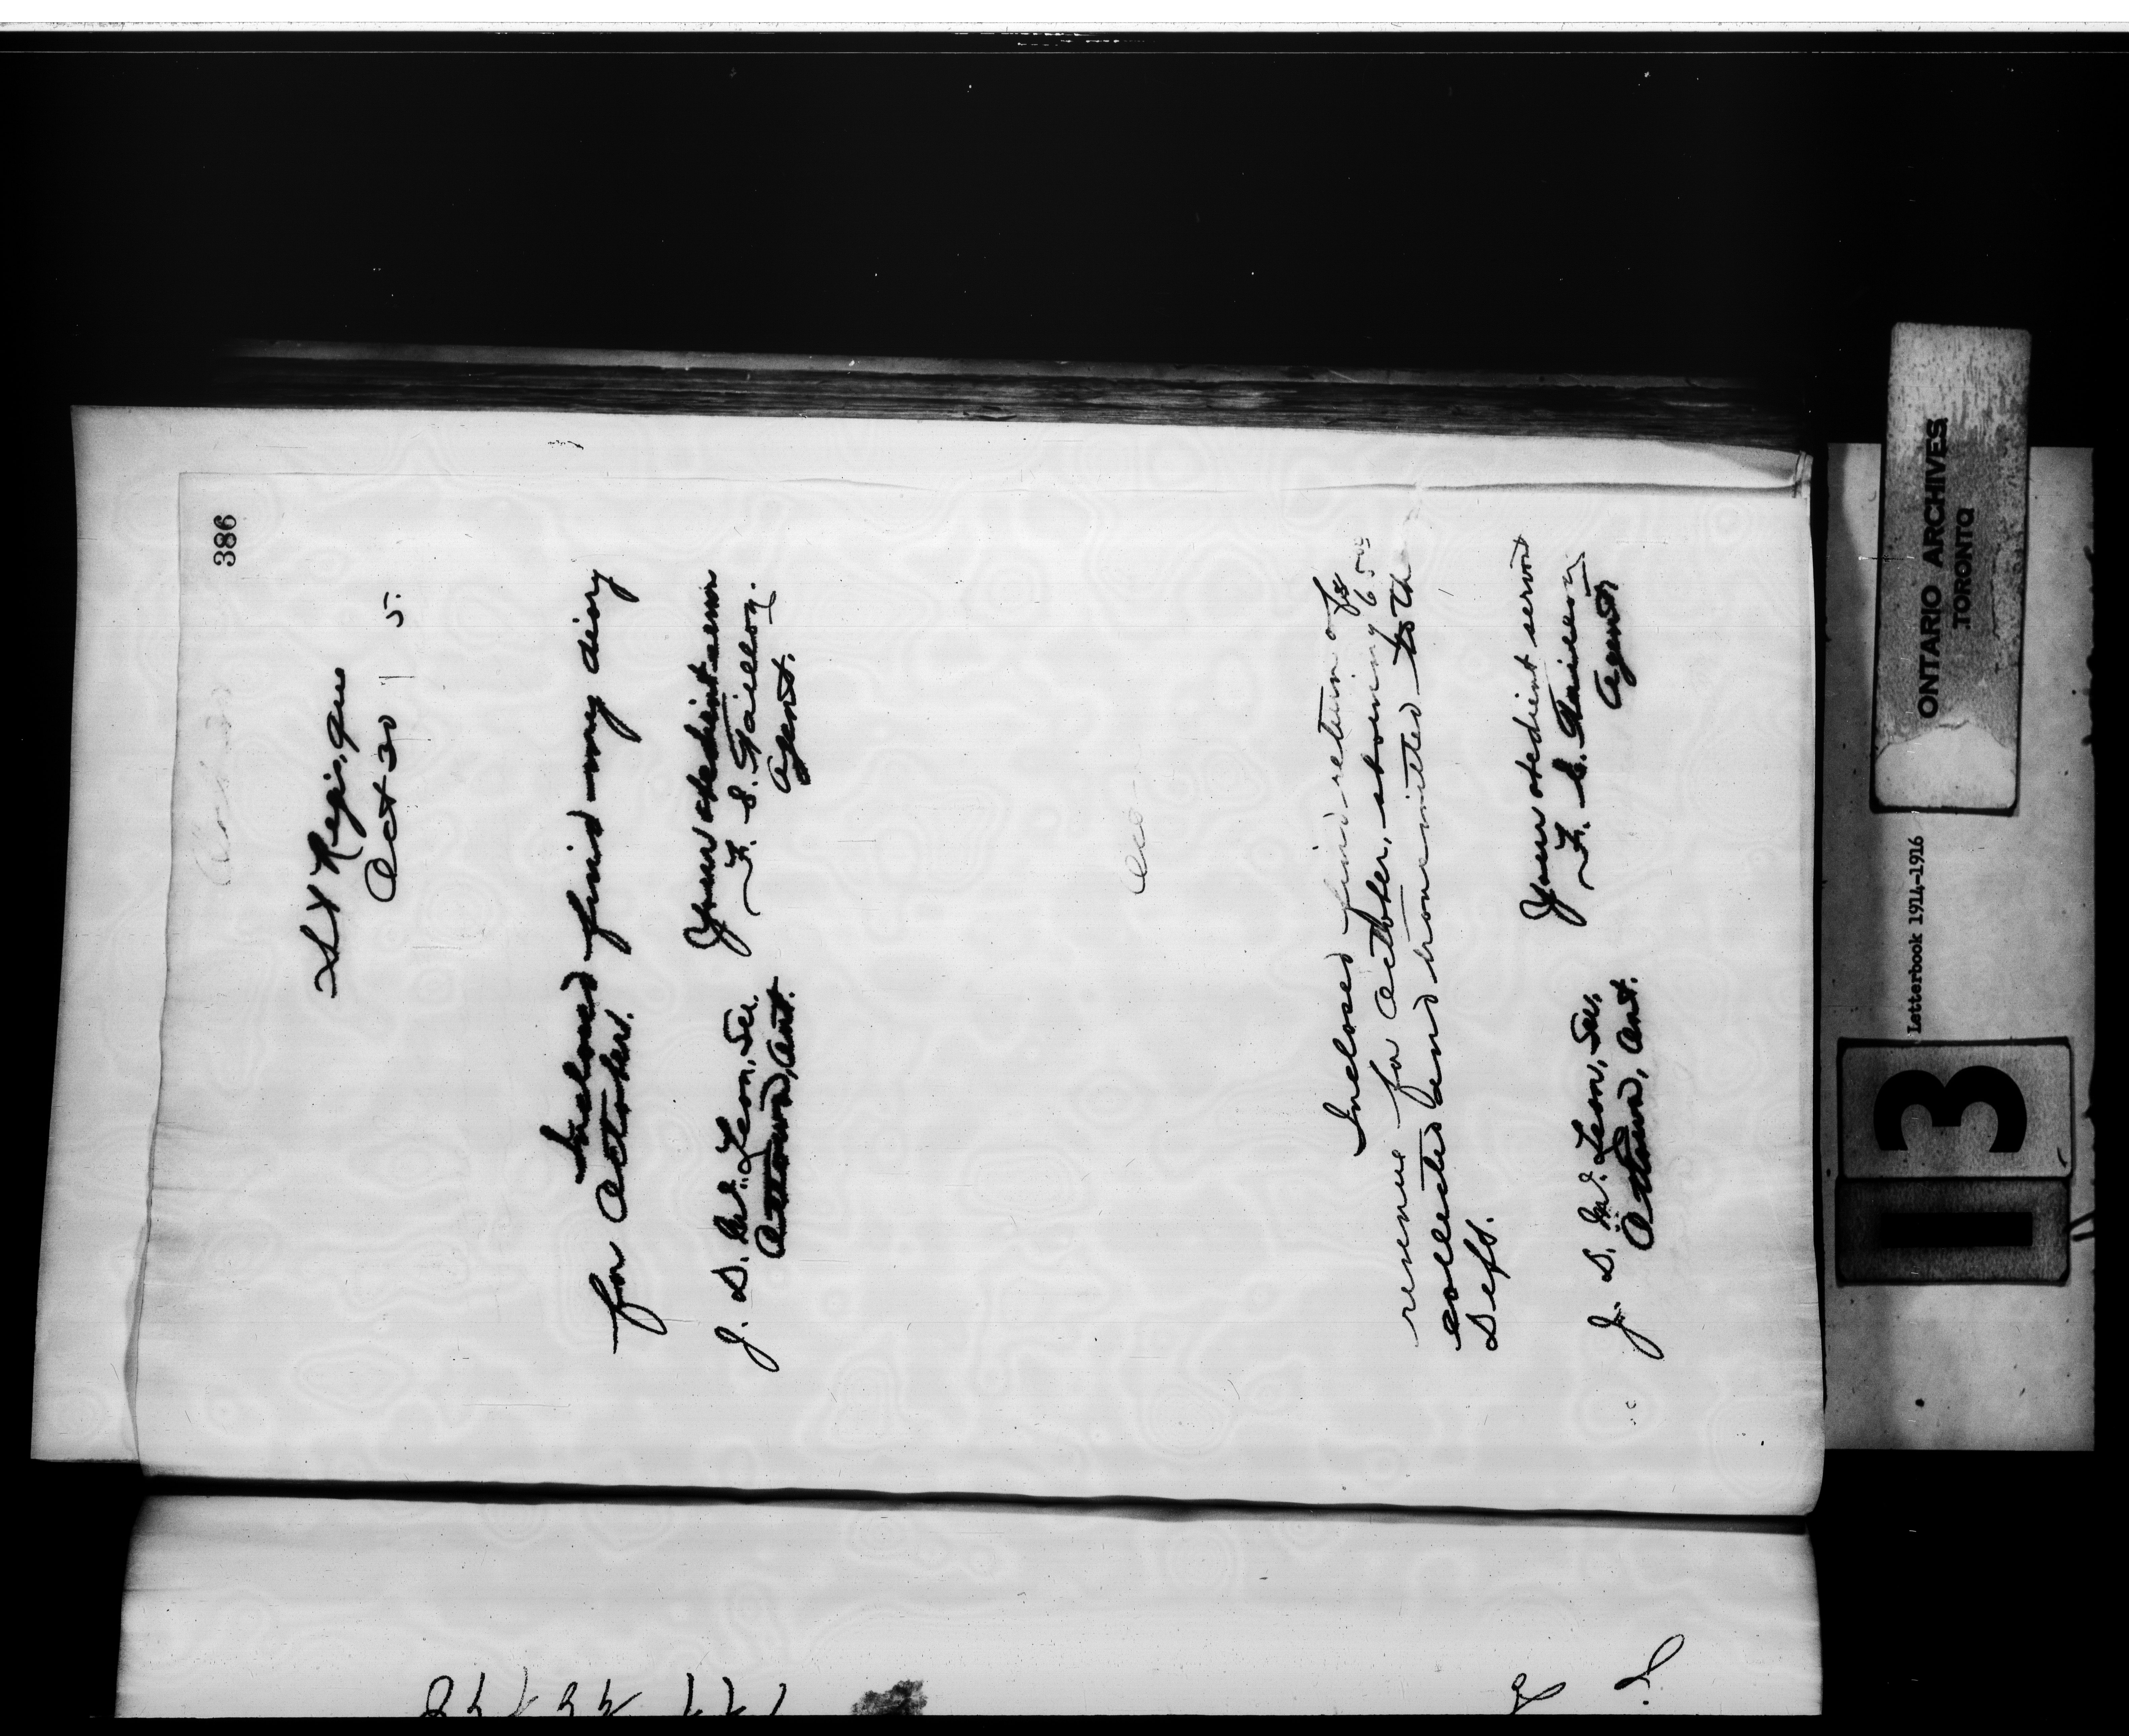 386
St Regis, Que
Oct 30 5.
Inclosed find my diary
for October.
Your obedient serv
F. E. Taillon.
Agent.
J. D. McLean, Sec.
Ottawa, Ont.
Inclosed find return of
revenue for October, showing 
collected and transmitted to the
Dept.
Your obedient servant
F. E. Taillon
Agent.
J. D. McLean, Sec.
Ottawa, Ont.
ONTARIO ARCHIVES
TORONTO
Letterbook 1914-1916
13